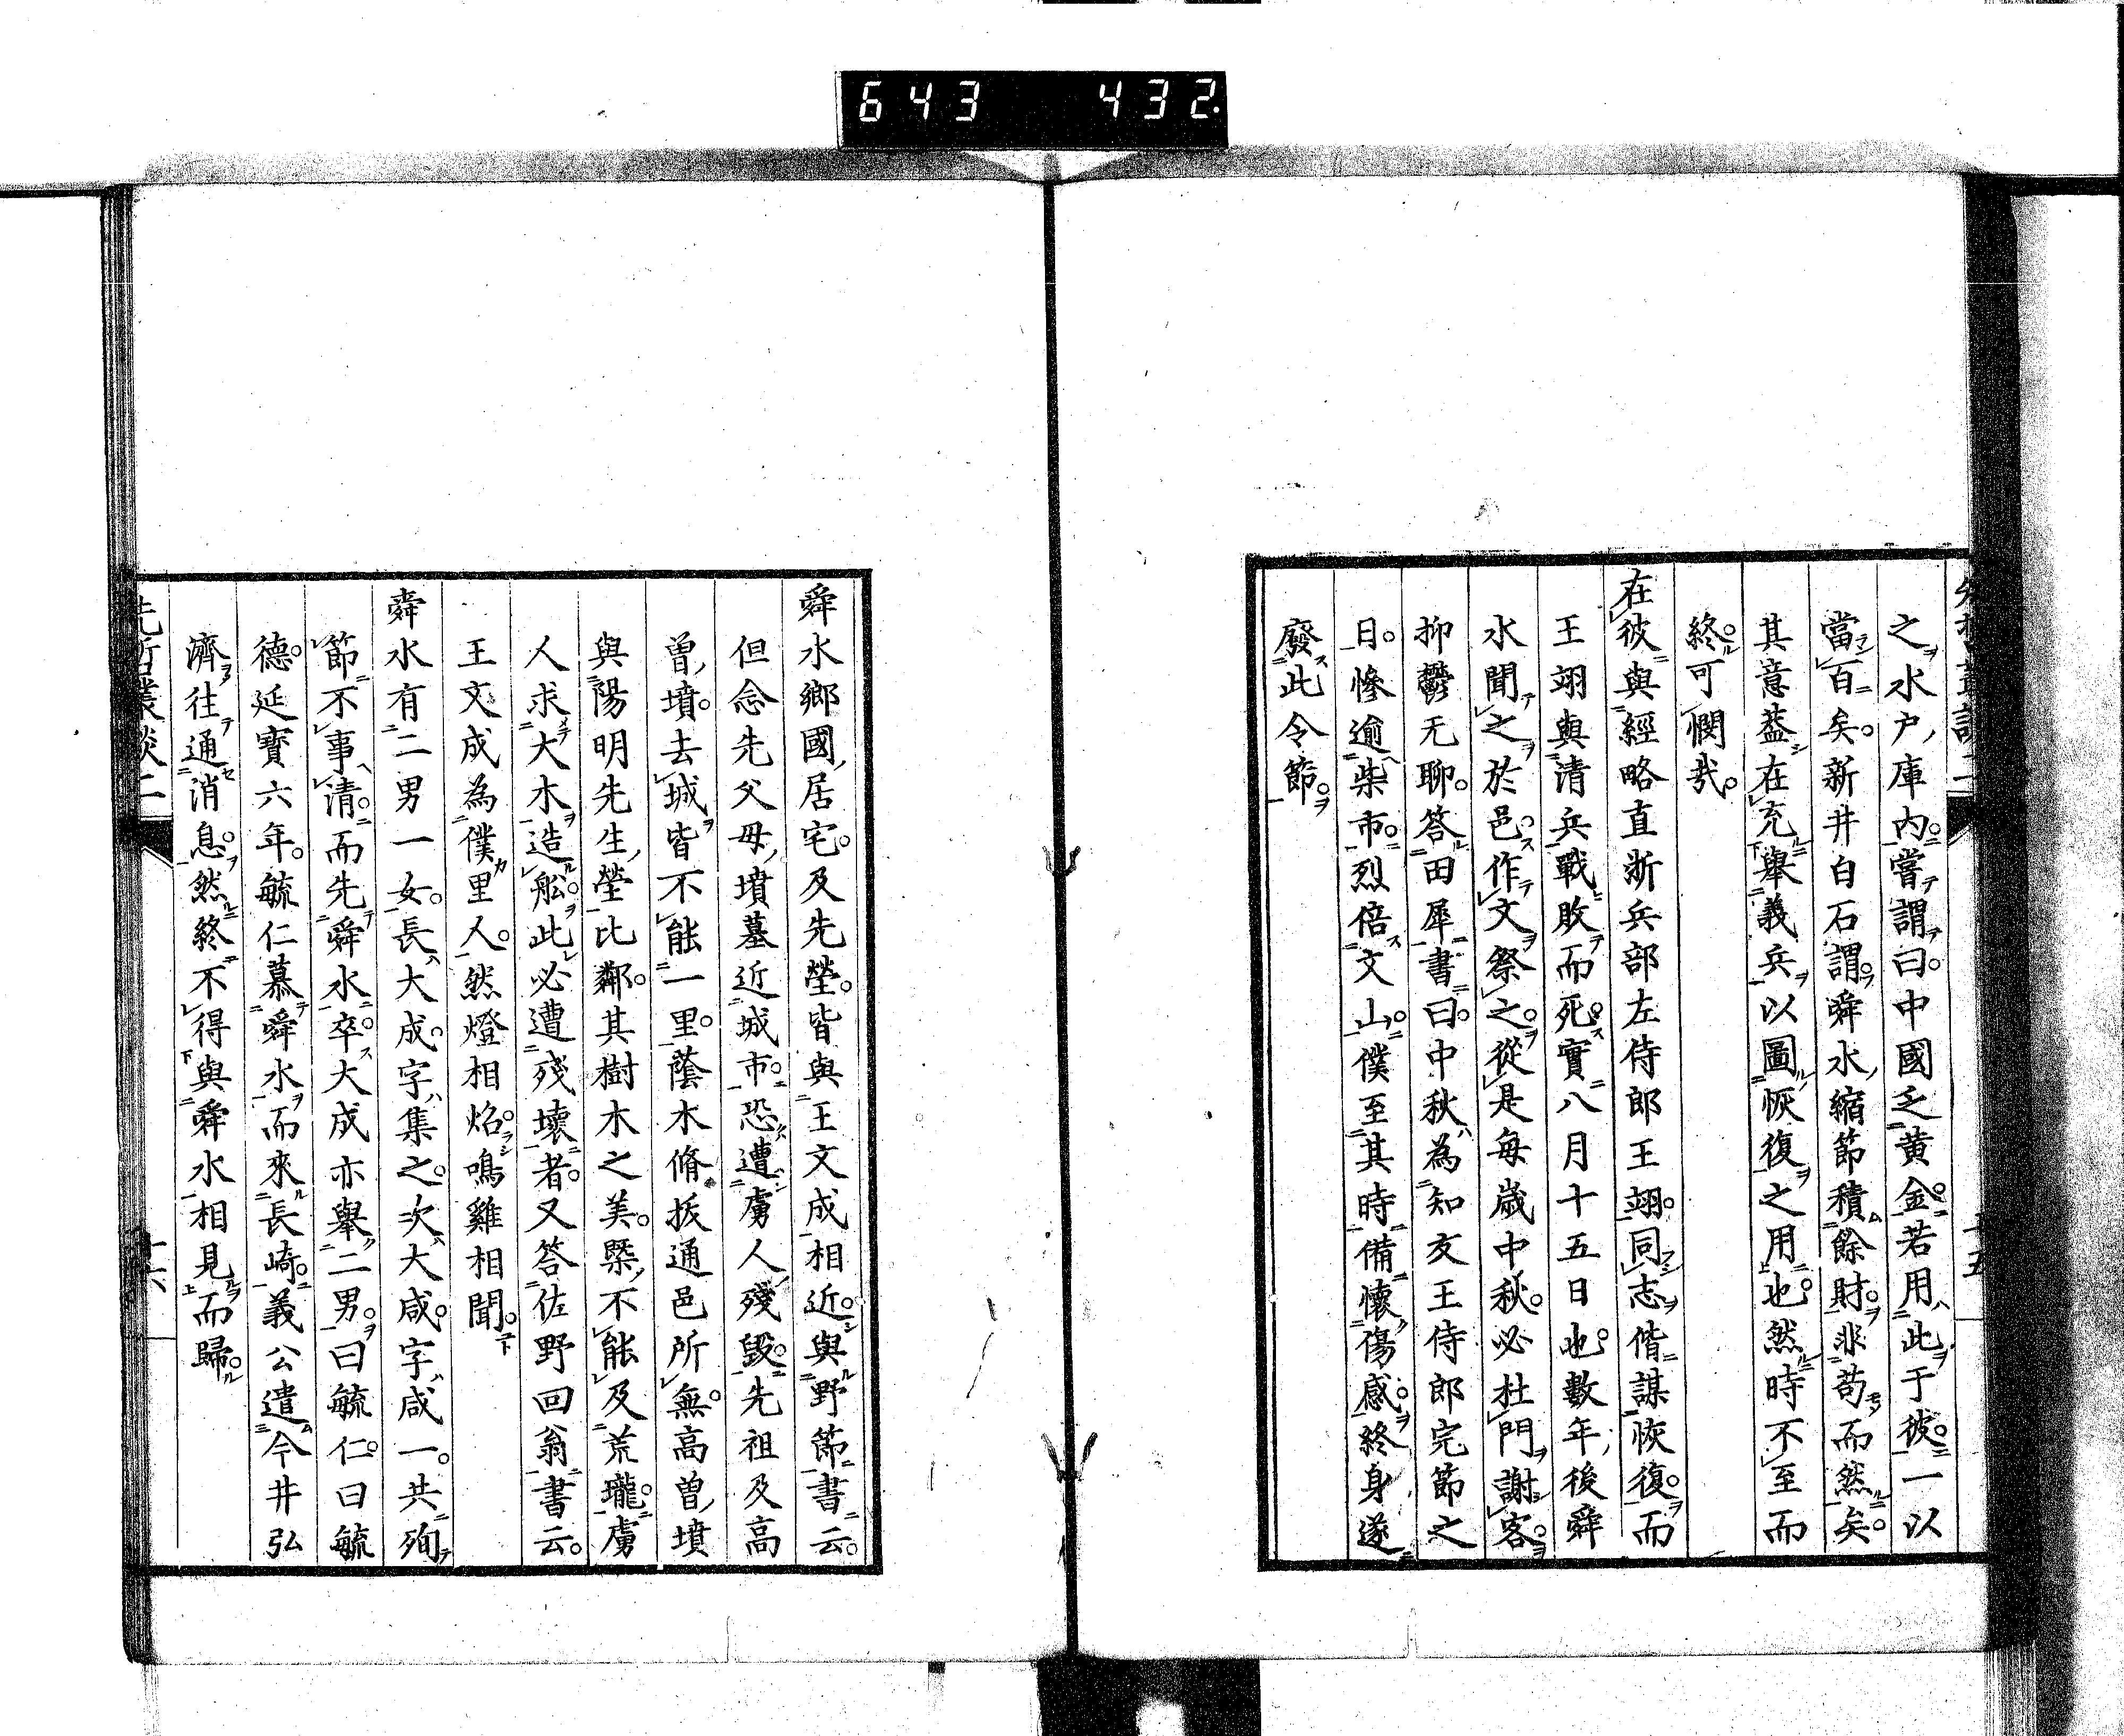 643 432.
之水户庫内嘗謂曰中國乏黄金若用此于彼一以
當百矣新井白石謂舜水縮節積餘財非苟而然矣
其意葢在充舉義兵以圖恢復之用也然時不至而
終可憫哉
在彼與經略直浙兵部左侍郎王翊同志偕謀恢復而
王翊與清兵戰敗而死實八月十五日也數年後舜
水聞之於邑作文祭之從是毎歳中秋必杜門謝客
抑鬱无聊答田犀書曰中秋為知友王侍郎完節之
日惨逾柴市烈倍文山僕至其時備懷傷感終身遂
廢此令節
舜水鄉國居宅及先塋皆與王文成相近與野節書云
但念先父母墳墓近城市恐遭虜人殘毀先祖及高
曾墳去城皆不能一里蔭木脩拔通邑所無高曽墳
與陽明先生塋比鄰其樹木之美槩不能及荒壠虜
人求大木造舩此必遭殘壞者又答佐野回翁書云
王文成為僕里人然燈相焰鳴雞相聞
舜水有二男一女長大成字集之次大咸字咸一共殉
節不事清而先舜水卒大成亦舉二男曰毓仁曰毓
德延寶六年毓仁慕舜水而來長崎義公遣今井弘
濟往通消息然終不得與舜水相見而歸